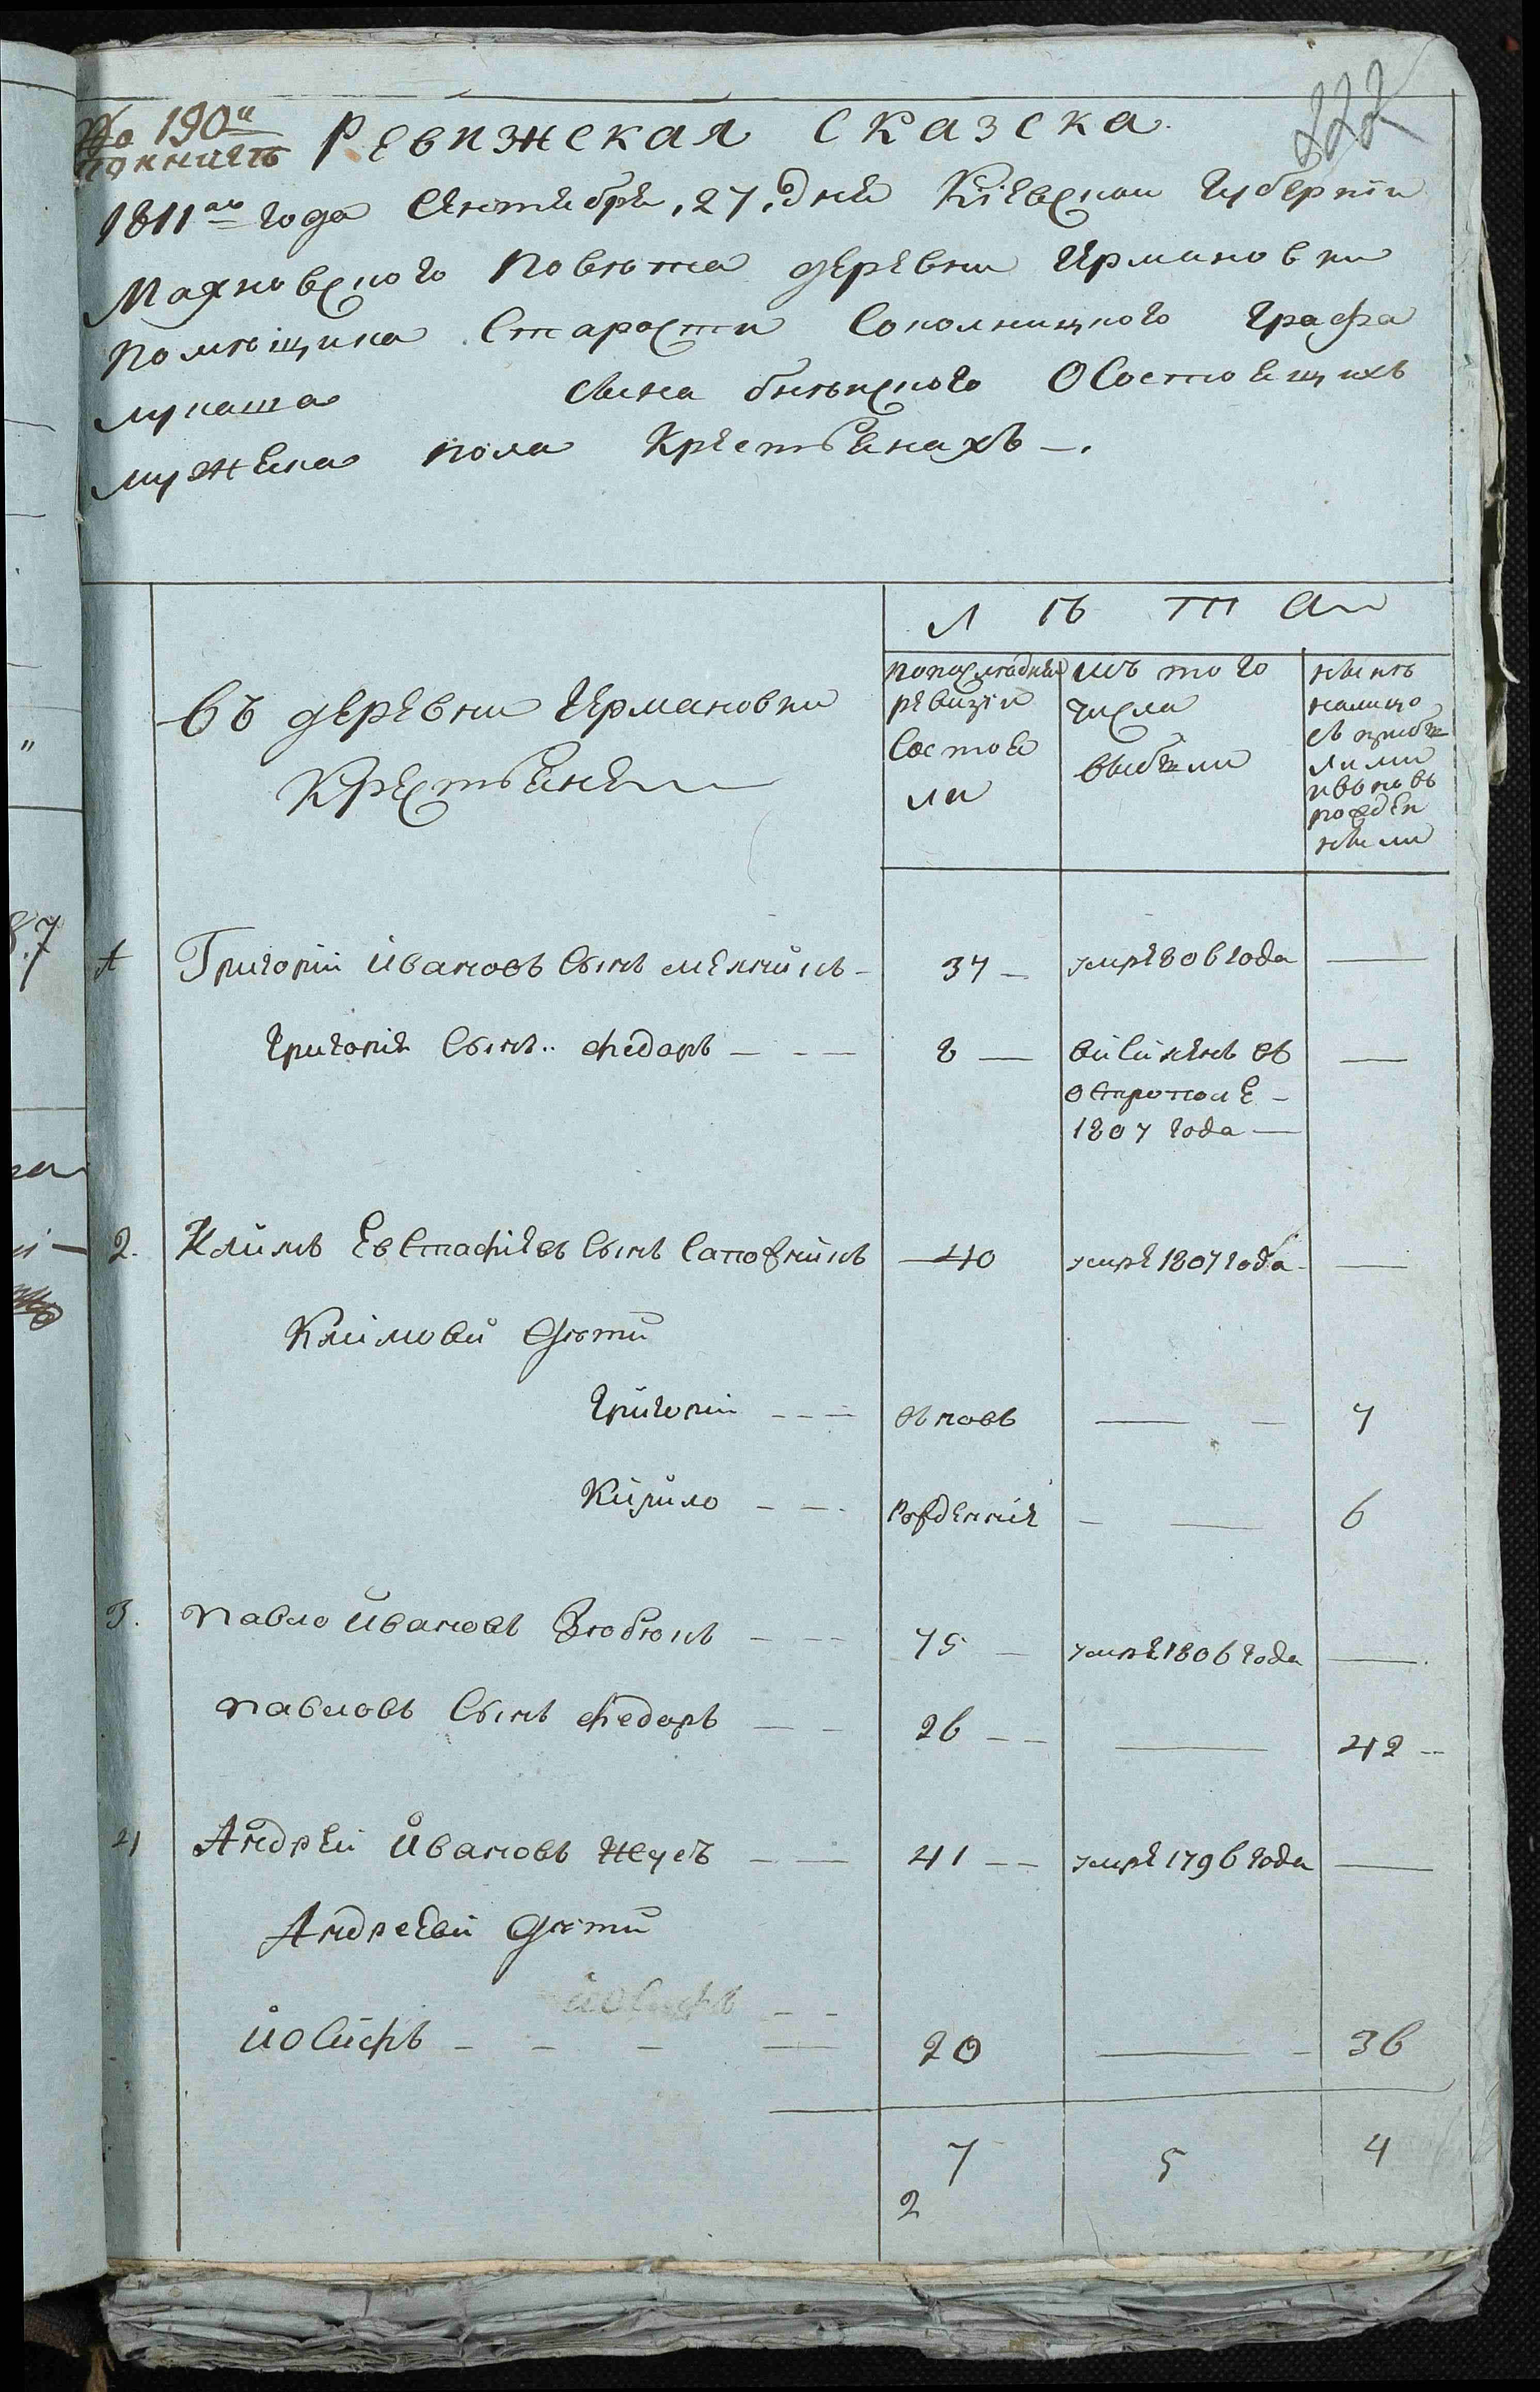 № 190й
по книгѣ
222
Ревизкская сказска
1811го года Сентября, 27, дня Кіевской Губерніи
Махновского Повѣта деревни Германовки
Помѣщика Старости Графа
Лукаша сына О Состоящихъ
мужека пола Крестьянахъ —.
Лѣта
Въ деревни Германовки
Крестьяне
попослѣдней
ревизіи
Состоя
ли
изъ того
числа
выбыли
нынѣ
налицо
съ прибы
лими
ивьновь
рожден
ными
1 Григорій Ивановъ Сынъ Мелникъ — 37 — умре 806 года —
Григорія Сынъ Федоръ — — — 8 — висилены въ —
Острополе —
1807 года —
2. Климъ Евстафіевъ Сынъ Сапожникъ — 40 умре 1807 года —
Климови Дѣти
Григорій — — — вновь — — 7
Кирило — — . Рожденніе — — 6
3. Павло Ивановъ Зюбюкъ — — — 75 — умре 1806 года —
Павловъ Сынъ Федоръ — — 26 — — — 42 —
4 Андрей Ивановъ — — 41 — — умре 1796 года —
Андрееви Дѣти
Йосифъ — —
Йосифъ — — — — 20 — — 36
7 5 4
2
87